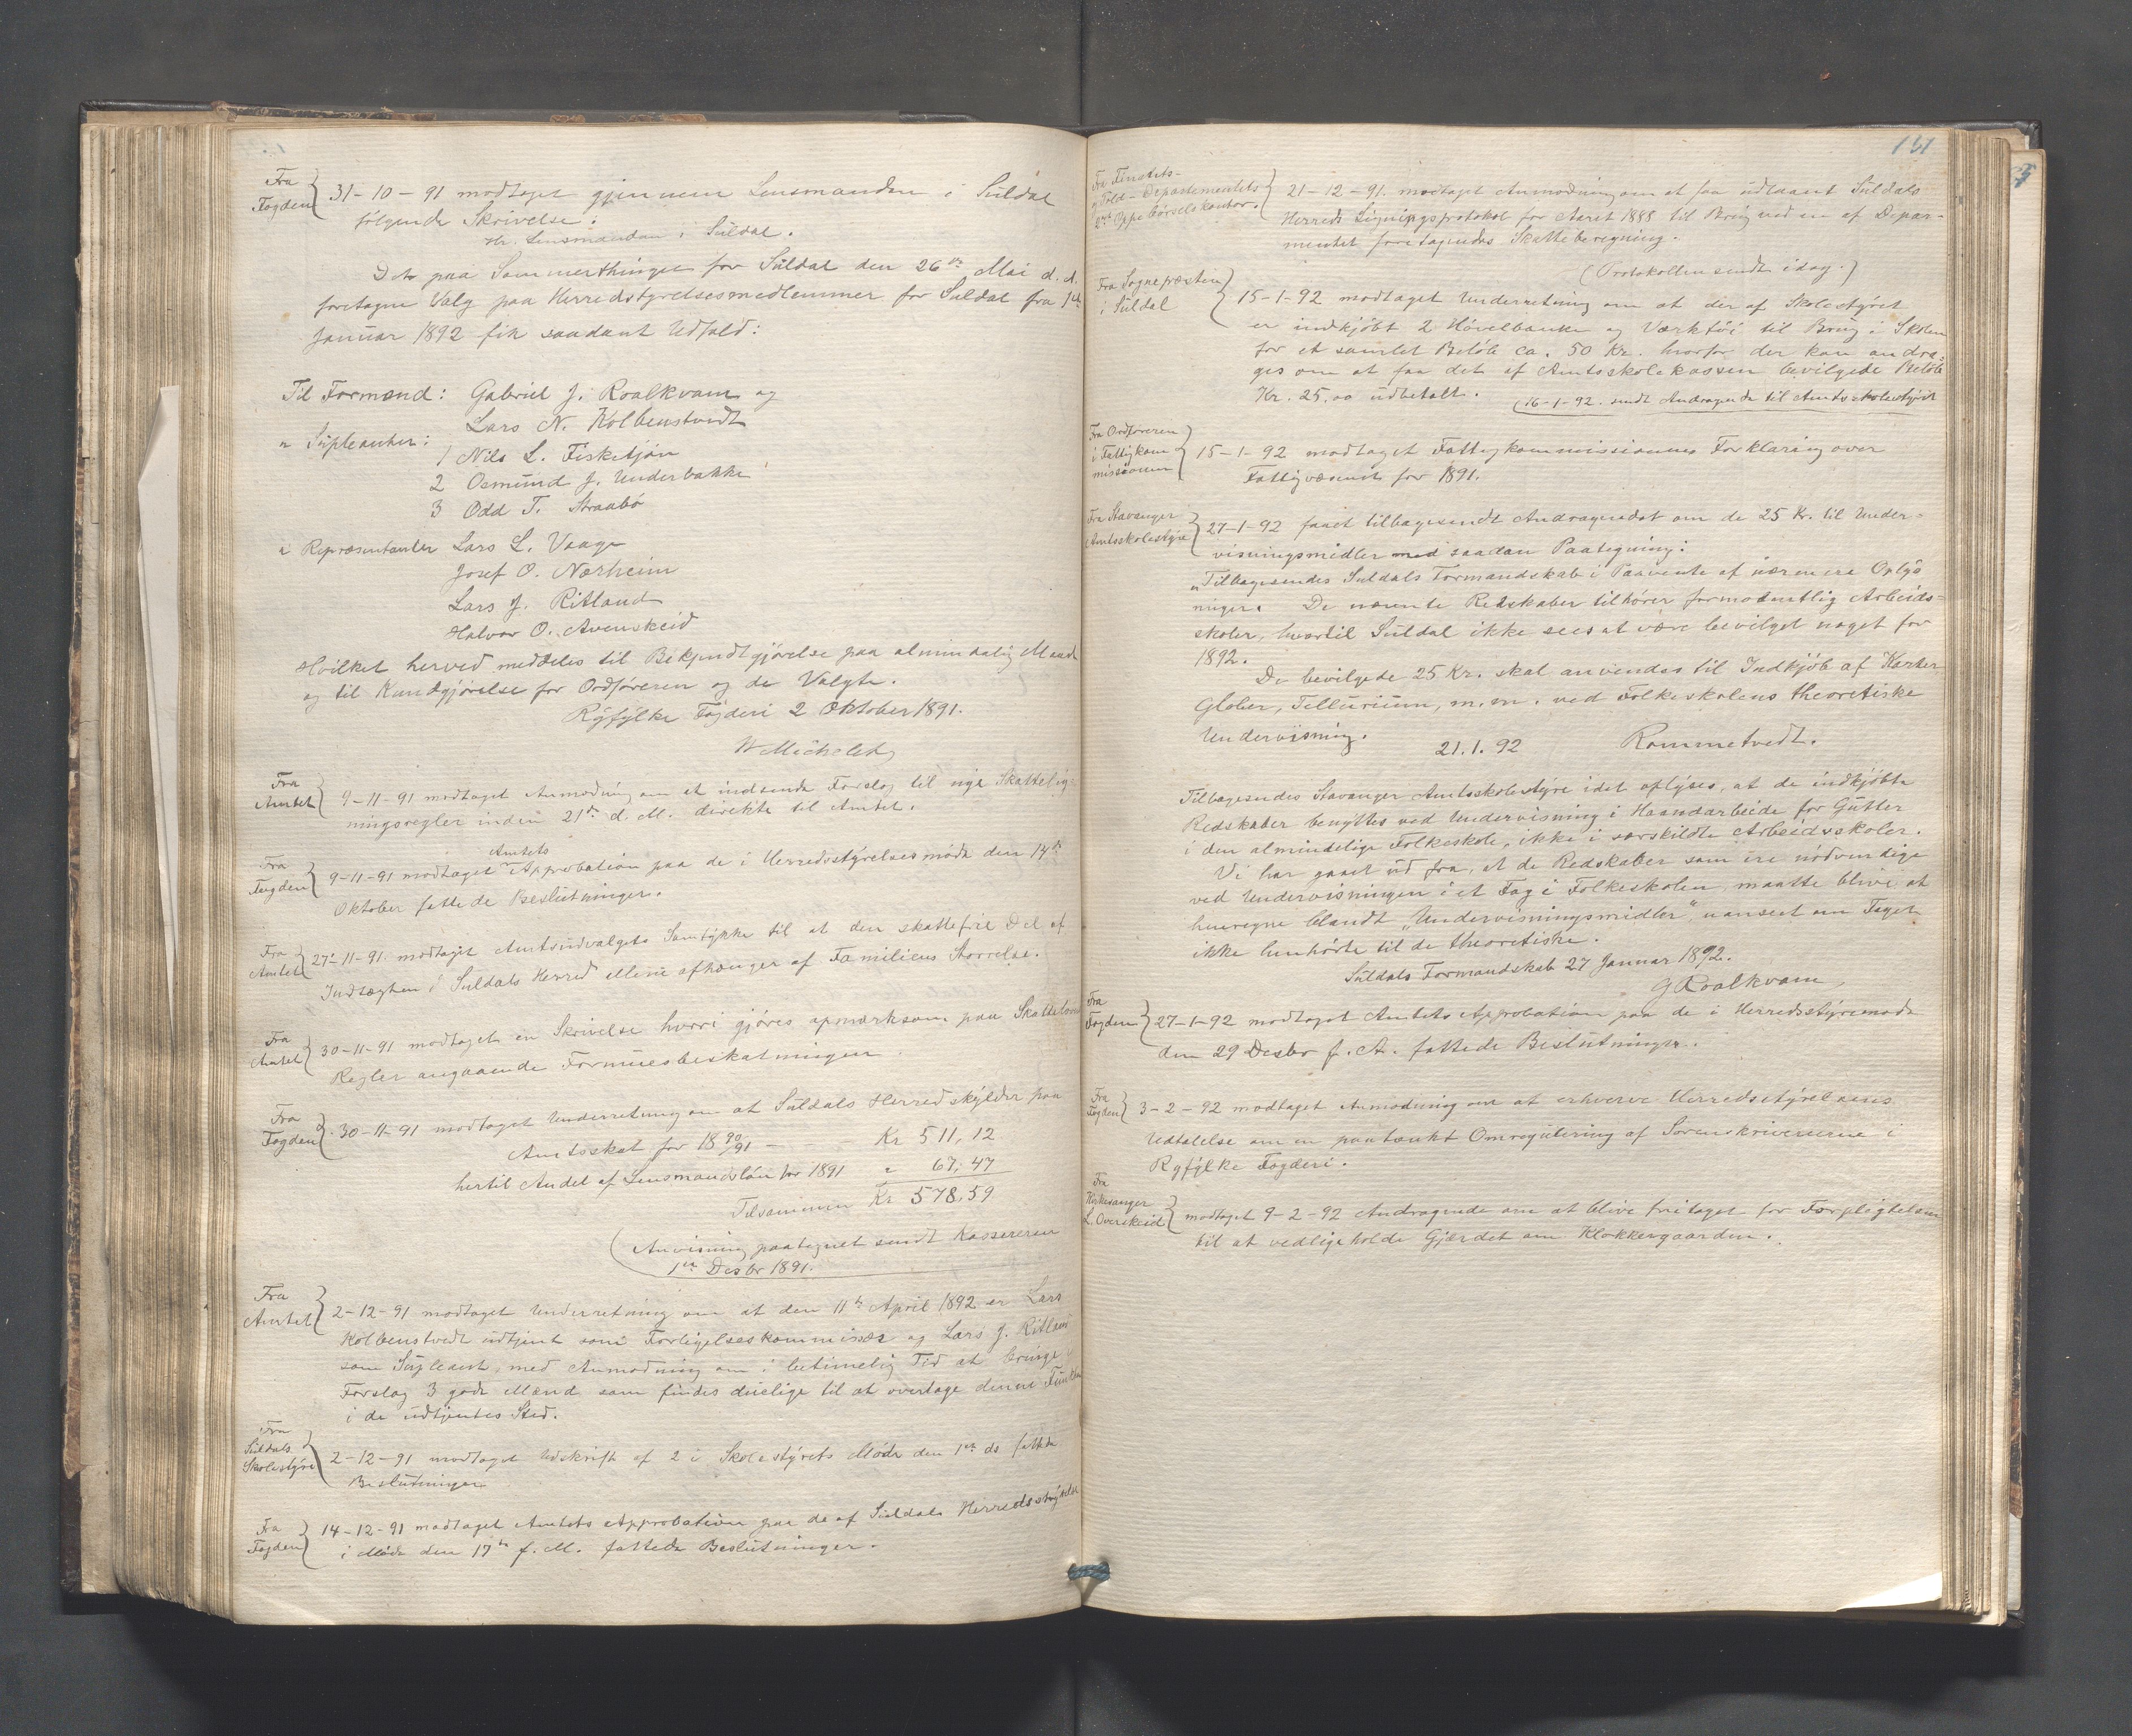 Fra
Fogden
31-10-91 modtaget gjennem Lensmanden i Suldal
følgende Skrivelse:
Hr. Lensmanden i Suldal.
Det paa Sommerthinget for Suldal den 26de Mai d. A.
foretagne Valg paa Herredstyrelsesmedlemmer for Suldal fra 1ste
Januar 1892 fik saadant Udfald:
Til Formænd: Gabriel J. Roalkvam og
Lars N. Kolbenstvedt
" Supleanter:
1 Nils L. Fisketjøn
2 Osmund J. Underbakke
3 Odd T. Straabø
" Repræsentanter Lars L. Vaage
Josef O. Nærheim
Lars J. Ritland
Halvor O. Avenskeid
Hvilket herved meddeles til Bekjendtgjørelse paa almindelig Maade
og til Kundgjørelse for Ordføreren og de Valgte.
Ryfylke Fogderi 2 Oktober 1891.
W Michelet
Fra
Amtet
9-11-91 modtaget Anmodning om at indsende Forslag til nye Skattelig-
ningsregler inden 21de d. M. direkte til Amtet.
Fra
Fogden
9-11-91 modtaget Amtets Approbation paa de i Herredsstyrelsesmøde den 14de
Oktober fattede Beslutninger.
Fra
Amtet
27-11-91 modtaget Amtsudvalgets Samtykke til at den skattefrie Del af
Indtægten i Suldals Herred ellene afhænger af Familiens Størrelse.
Fra
Amtet
30-11-91 modtaget en Skrivelse hvori gjøres opmærksom paa Skattelovens
Regler angaaende Formuesbeskatningen.
Fra
Fogden
30-11-91 modtaget Underretning om at Suldals Herred skylder paa
Amtsskat for 1890/91 — Kr 511,12
hertil Andel af Lensmandsløn for 1891 " 67,47
Tilsammen Kr 578,59
(Anvisning paategnet sendt Kassereren
1ste Desbr 1891.
Fra
Amtet
2-12-91 modtaget Underretning om at den 11te April 1892 er Lars
Kolbenstvedt udtjent som Forligelseskommissær og Lars J. Ritland
som Supleant, med Anmodning om i betimelig Tid at bringe i
Forslag 3 gode Mænd som findes duelige til at overtage denne Funktion
i de udtjentes Sted.
Fra
Suldals
Skolestyre
2-12-91 modtaget Udskrift af 2 i Skolestyrets Møde den 1ste ds fattede
Beslutninger
Fra
Fogden
14-12-91 modtaget Amtets Approbation paa de af Suldals Herredsstyrelse
i Møde den 17de f. M. fattede Beslutninger.
131
Fra Finants-
og Told-Departementets
2det Oppebørselskontor.
21-12-91. modtaget Anmodning om at faa udlaant Suldals
Herreds Ligningsprotokol for Aaret 1888 til Brug ved en af Depar-
mentet foretagendes Skatteberegning.
(Protokollen sendt idag.)
Fra Sognepræsten
i Suldal
15-1-92 modtaget Underretning om at der af Skolestyret
er indkjøbt 2 Høvelbænke og Værktøi til Brug i Skolen
for et samlet Beløb ca. 50 Kr. hvorfor der kan andra-
ges om at faa det af Amtsskolekassen bevilgede Beløb
Kr. 25.00 udbetalt. (16-1-92. sendt Andragende til Amtsskolestyret
Fra Ordføreren
i Fattigkom
missionen
15-1-92 modtaget Fattigkommissionens Forklaring over
Fattigvæsenet for 1891.
Fra Stavanger
Amtsskolestyre
27-1-92 faaet tilbagesendt Andragendet om de 25 Kr. til Under-
visningsmidler med saadan Paategning:
"Tilbagesendes Suldals Formandskab i Paavente af nærmere Oplys
ninger. De nævnte Redskaber tilhører formodentlig Arbeids-
skoler, hvortil Suldal ikke sees at være bevilget noget for
1892.
De bevilgede 25 Kr. skal anvendes til Indkjøb af Karter
Glober, Tellurium, m.m. ved Folkeskolens theoretiske
Undervisning.
21.1.92 Rommetvedt.
Tilbagesendes Stavanger Amtsskolestyre idet oplyses, at de indkjøbte
Redskaber benyttes ved Undervisning i Haandarbeide for Gutter
i den almindelige Folkeskole, ikke i særskildte Arbeidsskoler.
Vi har gaaet ud fra, at de Redskaber som ere nødvendige
ved Undervisningen i et Fag i Folkeskolen, maatte blive at
henregne blandt "Undervisningsmidler", uanseet om Faget
ikke henhørte til de theoretiske.
Suldals Formandskab 27 Januar 1892.
G Roalkvam
Fra
Fogden
27-1-92 modtaget Amtets Approbation paa de i Herredsstyremøde
den 29 Desbr f. A. fattede Beslutninger.
Fra
Fogden
3-2-92 modtaget Anmodning om at erhverve Herredsstyrelsens
Udtalelse om en paatænkt Omregulering af Sorenskriverierne i
Ryfylke Fogderi.
Fra
Kirkesanger
L. Overskeid
modtaget 9-2-92 Andragende om at blive fritaget for Forpligtelsen
til at vedligeholde Gjærdet om Klokkergaarden.